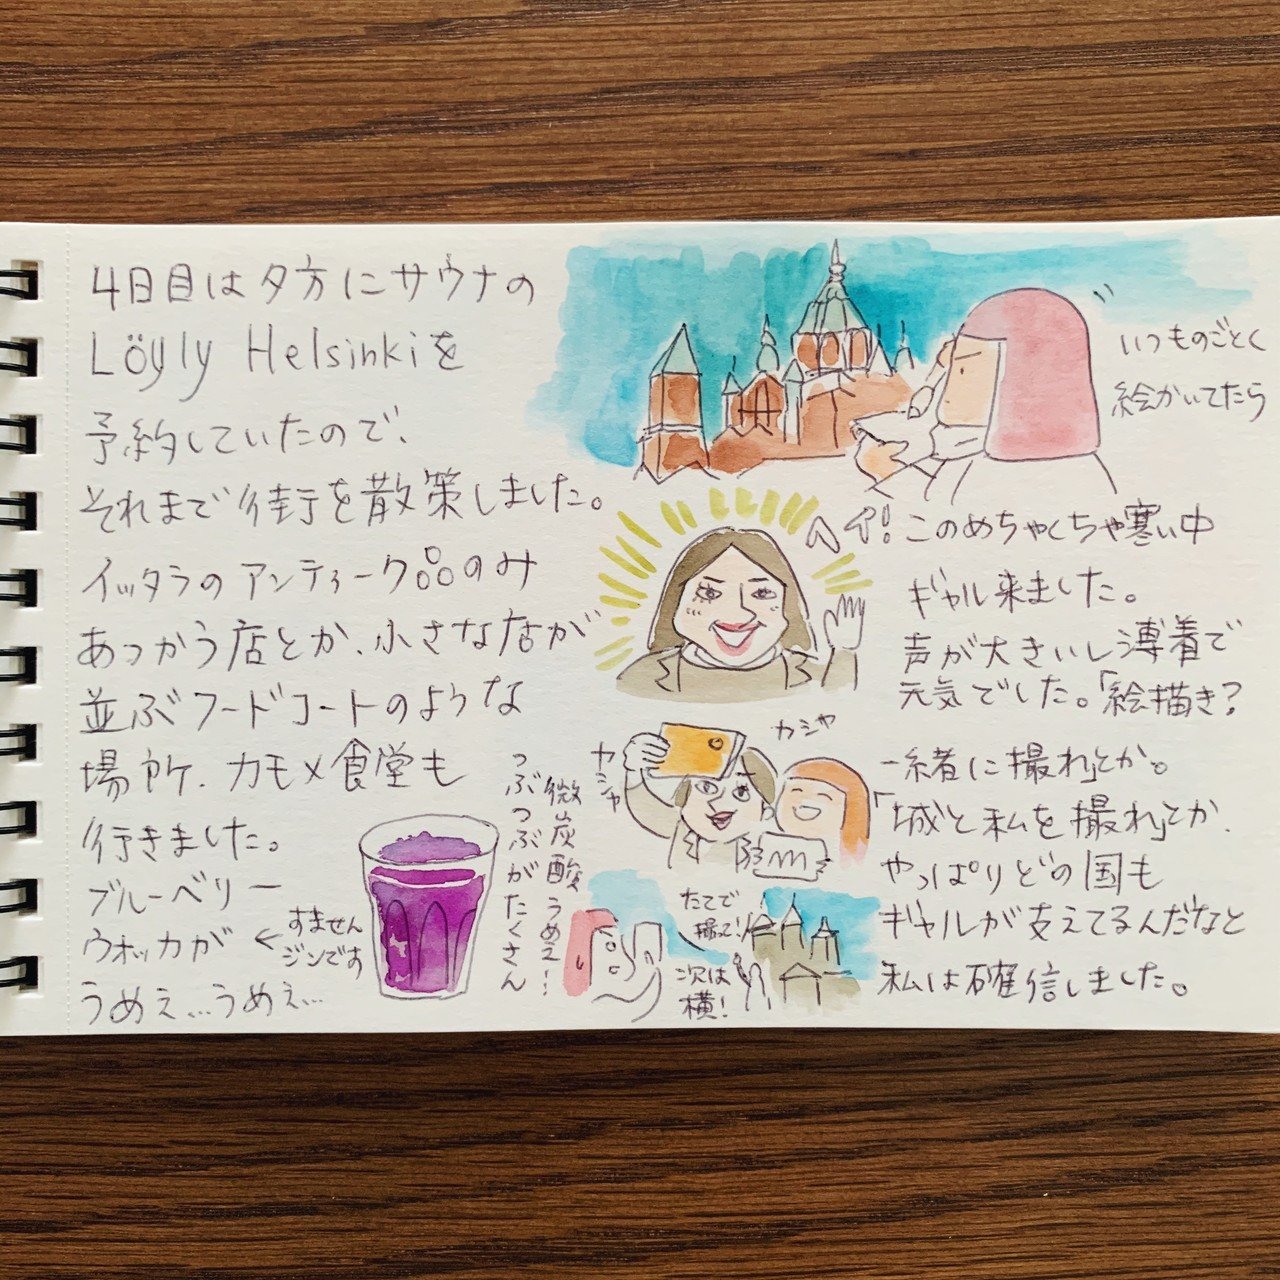 4日目は夕方にサウナの
Löyly Helsinkiを
予約していたので、
それまで街を散策しました。
イッタラのアンティーク品のみ
あつかう店とか、小さな店が
並ぶフードコートのような
場所、カモメ食堂も
行きました。
ブルーベリー
ウォッカが
うめぇ…うめぇ…
← すません
ジンです
微炭酸うめえ!…
つぶつぶがたくさん
いつものごとく
絵かいてたら
ヘイ!
このめちゃくちゃ寒い中
ギャル来ました。
声が大きいし薄着で
元気でした。「絵描き?
一緒に撮れ」とか。
「城と私を撮れ」とか、
やっぱりどの国も
ギャルが支えてるんだなと
私は確信しました。
カシャ
カシャ
たてで
撮って!
次は
横!